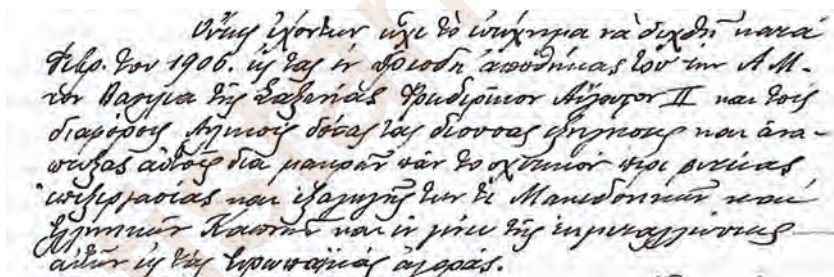 Οὕτως ἐχόντων εἶχε τὸ εὐτύχημα νὰ δεχθῇ κατὰ
Φεβρ. τοῦ 1906. εἰς τὰς ἐν Δρέσδῃ ἀποθήκας τοῦ τὴν Α.Μ.
τὸν Βασιλέα τῆς Σαξωνίας Φρειδερῖκον Αὔγουστον II καὶ τοὺς
διαφόρους δόσας τὰς δεούσας ἐξηγήσεις καὶ ἀνα-
πτύξας αὐτοῖς διὰ μακρῶν πᾶν τὸ σχετικὸν περὶ
ἐπεξεργασίας καὶ ἐξαγωγῆς τῶν τε Μακεδονικῶν καὶ
Ἑλληνικῶν Καπνῶν καὶ ἐν γένει τῆς ἐκμεταλλεύσεως
αὐτῶν εἰς τὰς Εὐρωπαϊκὰς ἀγοράς.